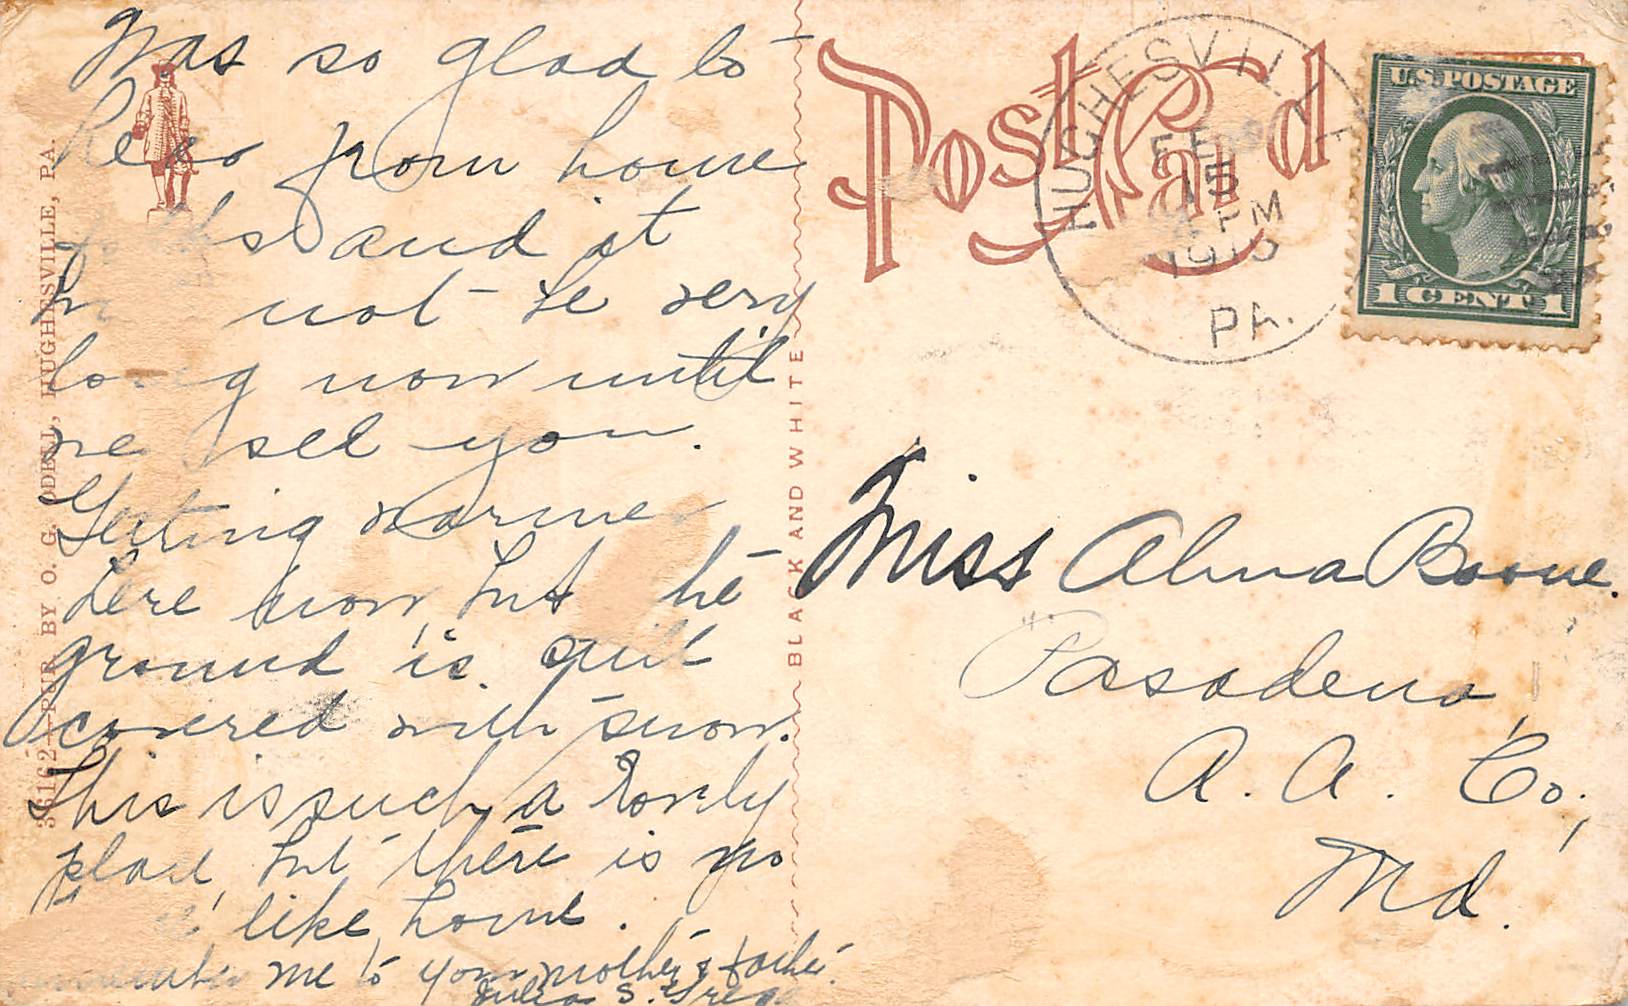 Was so glad to
hear from home
folks and it
not be very
long now until
we see you.
Getting warmer
here now, but the
ground is quite
covered with snow.
This is such a lovely
place, but there is no
place like home.
Remember me to your mother & father.
Julia S.
36162—PUB BY O. G. ODELL, HUGHESVILLE, PA.
BLACK AND WHITE
Post Card
HUGHESVILLE
FEB
15
PM
PA.
U.S. POSTAGE
1 CENT 1
Miss Alma Boone.
Pasadena,
A. A. Co.,
Md.